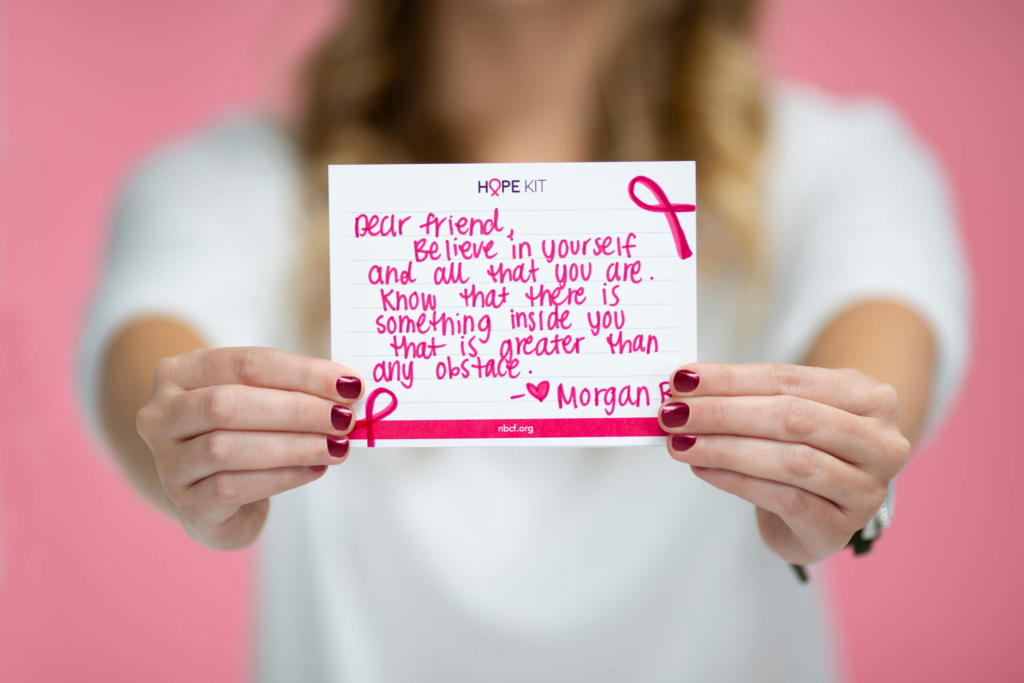 HOPE KIT
Dear friend,
Believe in yourself
and all that you are.
Know that there is
something inside you
that is greater than
any obstace.
- ♥ Morgan
nbcf.org